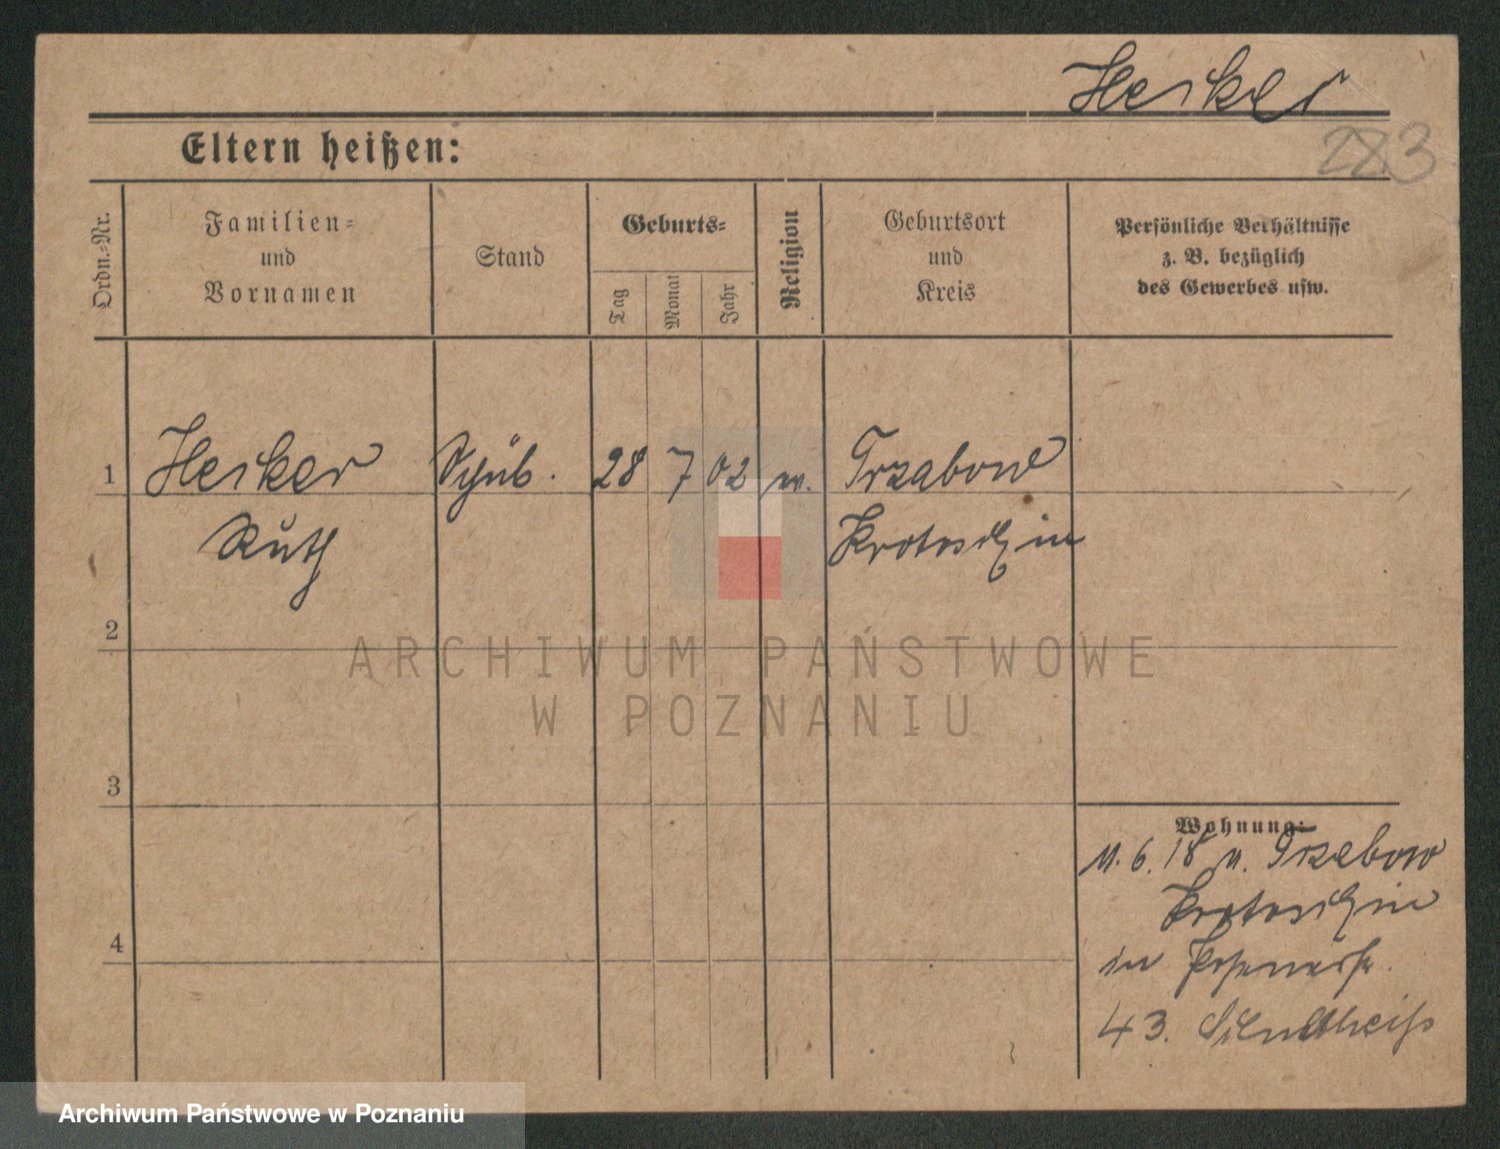 Heiker
283
Eltern heißen:
Ordn.=Nr.
Familien=
und
Vornamen
Stand
Geburts=
Tag
Monat
Jahr
Religion
Geburtsort
und
Kreis
Persönliche Verhältnisse
z. B. bezüglich
des Gewerbes usw.
1 Heiker 28 7 02 Trzabow
Ruth Krotoschin
2
3
4
Wohnung:
6. 18 n. Trzebow
Krotoschin
in
43. Schultheiß
ARCHIWUM PAŃSTWOWE
W POZNANIU
Archiwum Państwowe w Poznaniu